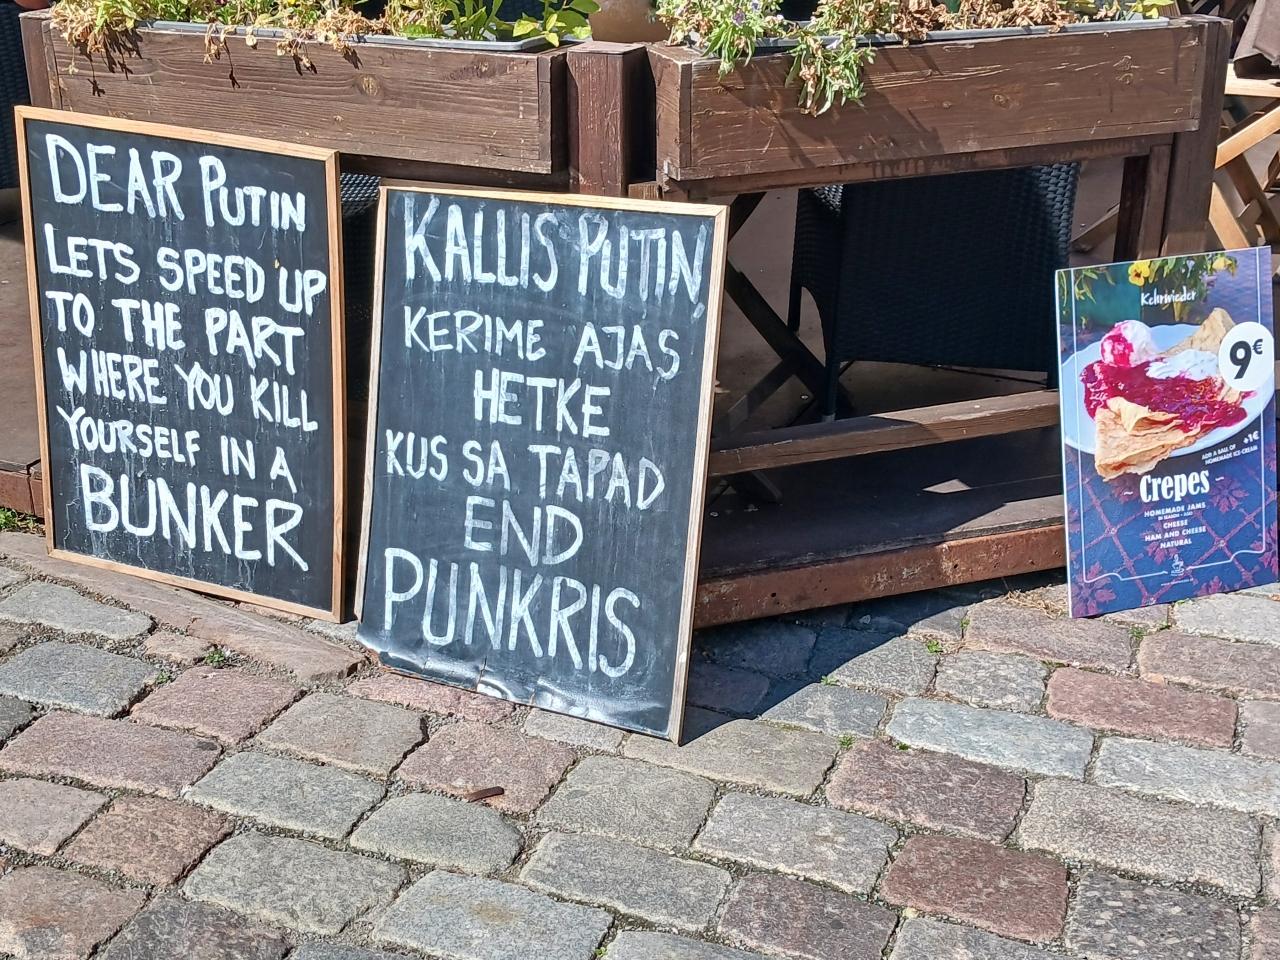 DEAR PUTIN
LETS SPEED UP
TO THE PART
WHERE YOU KILL
YOURSELF IN A
BUNKER
KALLIS PUTIN,
KERIME AJAS
HETKE
KUS SA TAPAD
END
PUNKRIS
Kehrwieder
9€
+1€
ADD A BALL OF
HOMEMADE ICE-CREAM
~ Crepes ~
HOMEMADE JAMS
CHEESE
HAM AND CHEESE
NATURAL